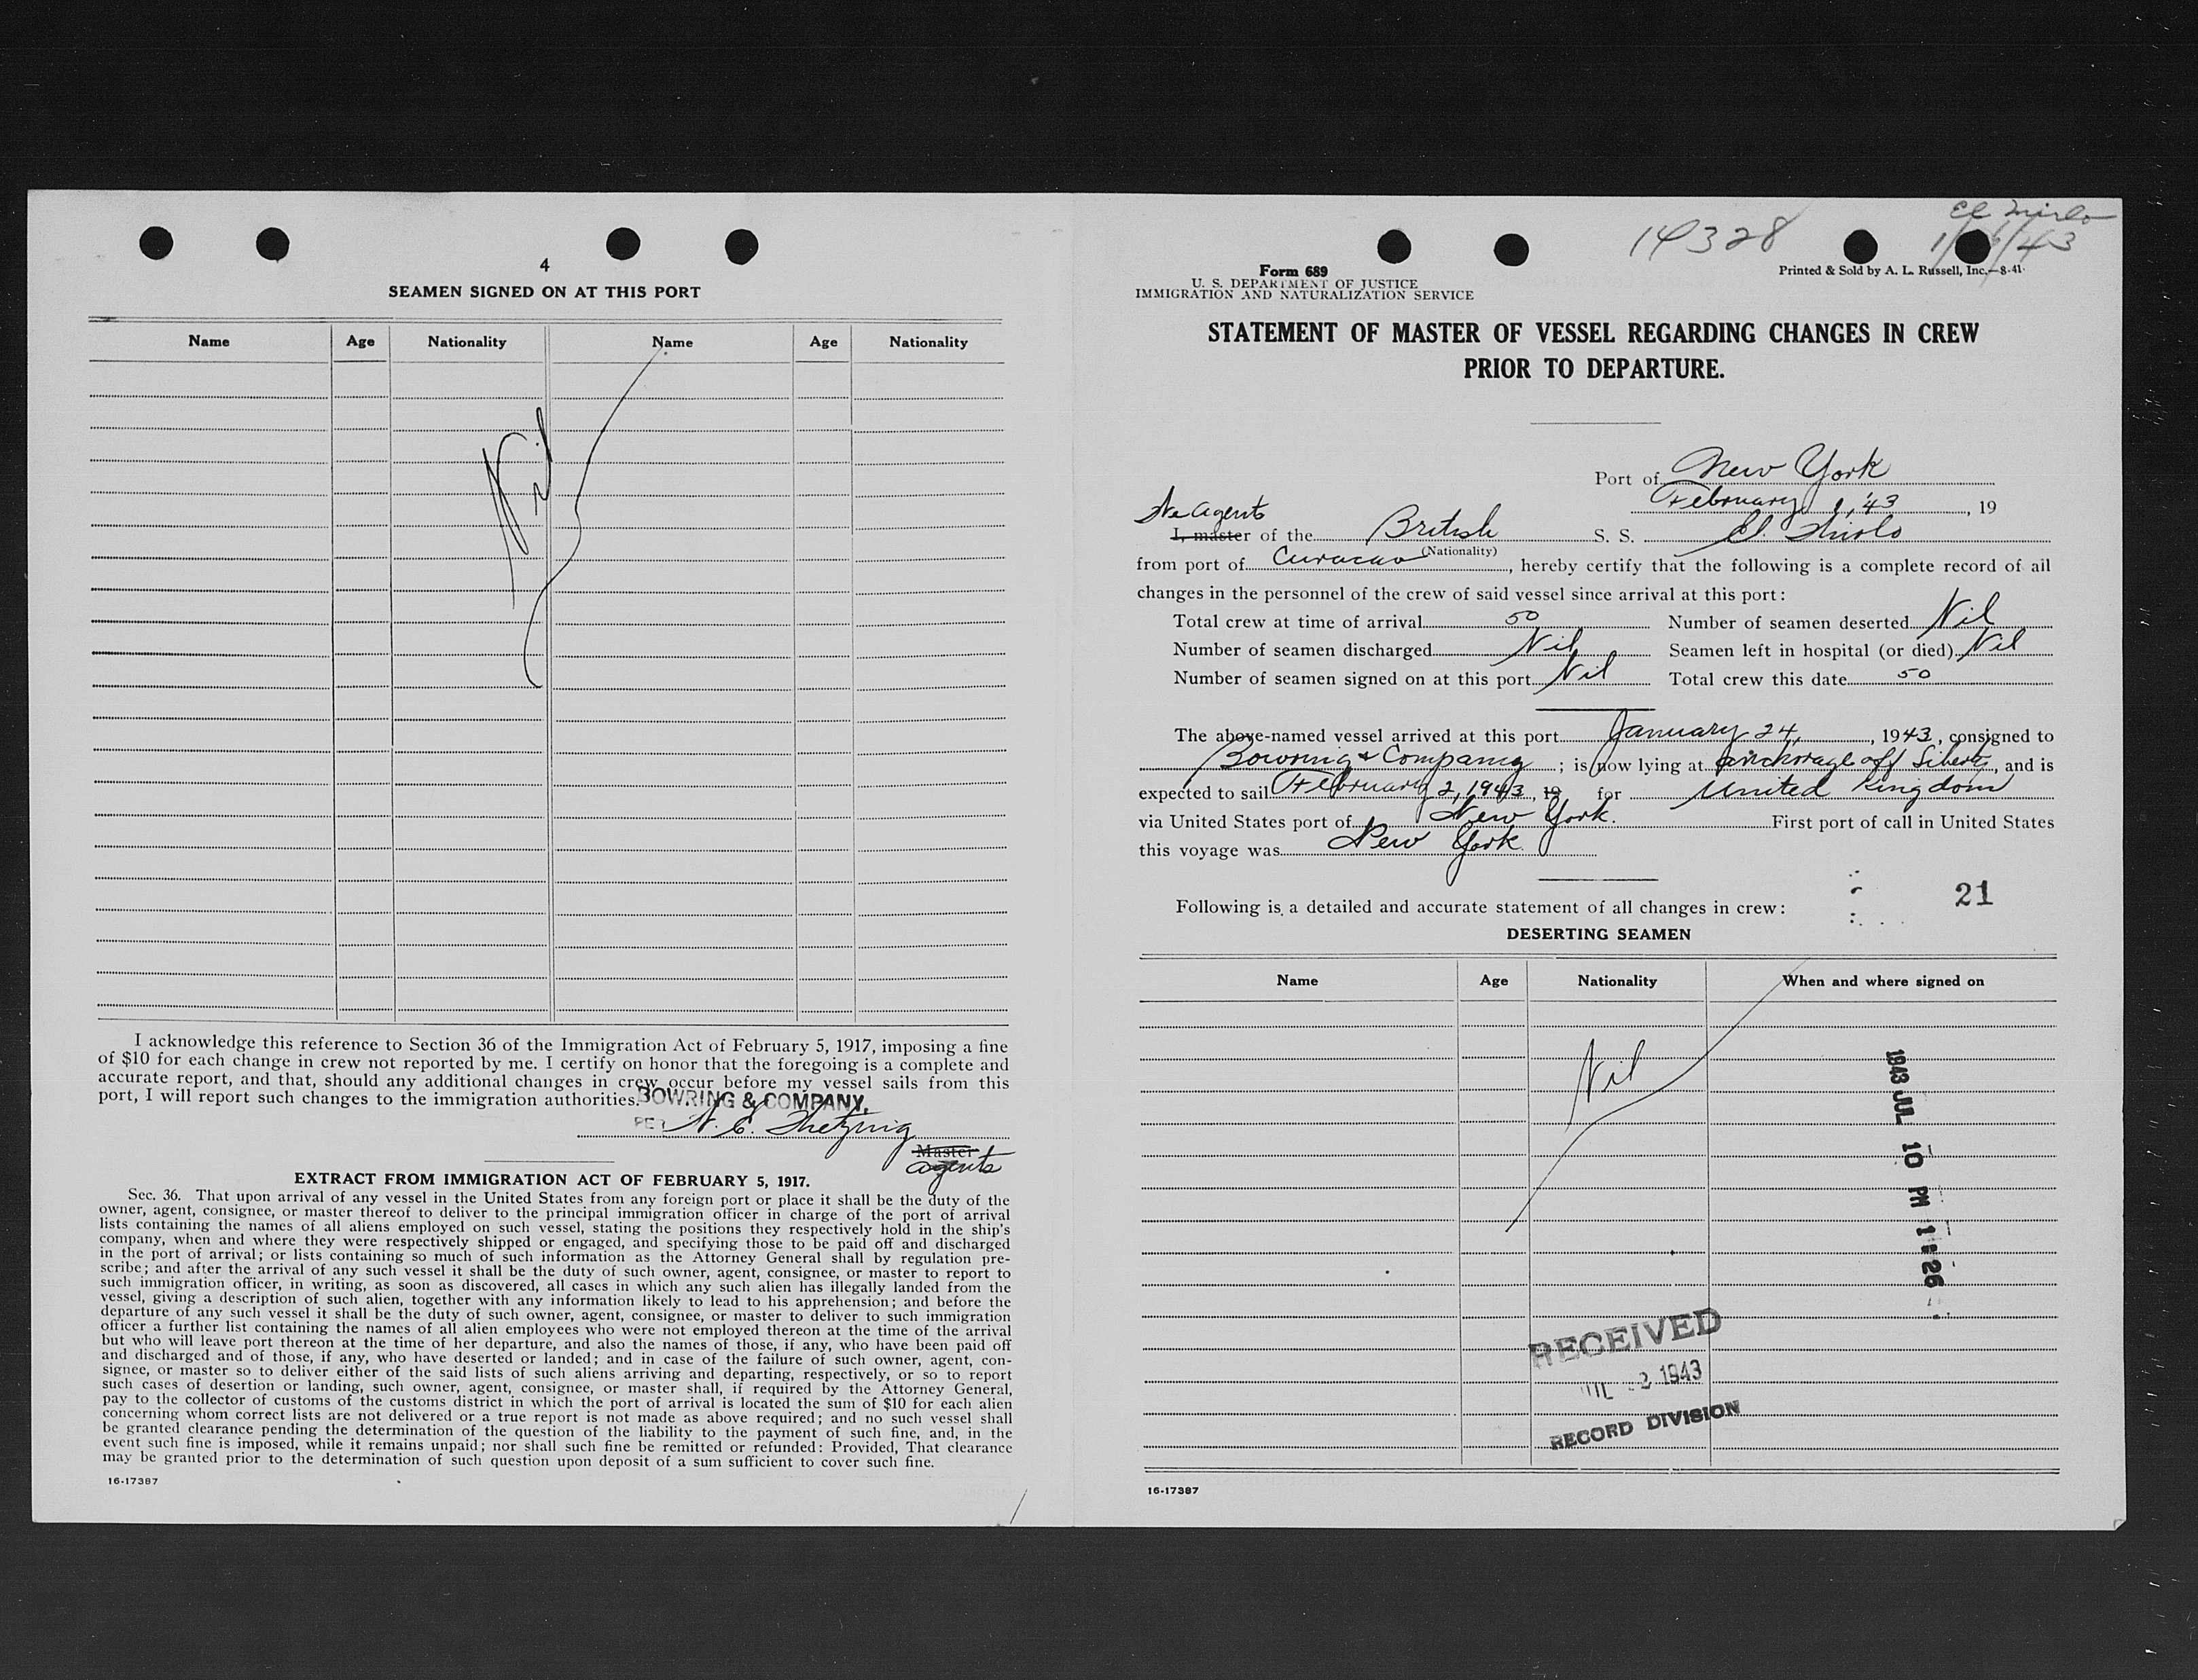 4
SEAMEN SIGNED ON AT THIS PORT
Name Age Nationality Name Age Nationality
Nil
I acknowledge this reference to Section 36 of the Immigration Act of February 5, 1917, imposing a fine
of $10 for each change in crew not reported by me. I certify on honor that the foregoing is a complete and
accurate report, and that, should any additional changes in crew occur before my vessel sails from this
port, I will report such changes to the immigration authorities.
BOWRING & COMPANY,
PER N. E.
Master
agents
EXTRACT FROM IMMIGRATION ACT OF FEBRUARY 5, 1917.
Sec. 36. That upon arrival of any vessel in the United States from any foreign port or place it shall be the duty of the
owner, agent, consignee, or master thereof to deliver to the principal immigration officer in charge of the port of arrival
lists containing the names of all aliens employed on such vessel, stating the positions they respectively hold in the ship's
company, when and where they were respectively shipped or engaged, and specifying those to be paid off and discharged
in the port of arrival; or lists containing so much of such information as the Attorney General shall by regulation pre-
scribe; and after the arrival of any such vessel it shall be the duty of such owner, agent, consignee, or master to report to
such immigration officer, in writing, as soon as discovered, all cases in which any such alien has illegally landed from the
vessel, giving a description of such alien, together with any information likely to lead to his apprehension; and before the
departure of any such vessel it shall be the duty of such owner, agent, consignee, or master to deliver to such immigration
officer a further list containing the names of all alien employees who were not employed thereon at the time of the arrival
but who will leave port thereon at the time of her departure, and also the names of those, if any, who have been paid off
and discharged and of those, if any, who have deserted or landed; and in case of the failure of such owner, agent, con-
signee, or master so to deliver either of the said lists of such aliens arriving and departing, respectively, or so to report
such cases of desertion or landing, such owner, agent, consignee, or master shall, if required by the Attorney General,
pay to the collector of customs of the customs district in which the port of arrival is located the sum of $10 for each alien
concerning whom correct lists are not delivered or a true report is not made as above required; and no such vessel shall
be granted clearance pending the determination of the question of the liability to the payment of such fine, and, in the
event such fine is imposed, while it remains unpaid; nor shall such fine be remitted or refunded: Provided, That clearance
may be granted prior to the determination of such question upon deposit of a sum sufficient to cover such fine.
16-17387
El Mirlo
14328
Form 689
Printed & Sold by A. L. Russell, Inc.—8-41
U. S. DEPARTMENT OF JUSTICE
IMMIGRATION AND NATURALIZATION SERVICE
STATEMENT OF MASTER OF VESSEL REGARDING CHANGES IN CREW
PRIOR TO DEPARTURE.
Port of New York
February 1, '43, 19
We agents
I, master of the British S. S. El Mirlo
(Nationality)
from port of Curacao, hereby certify that the following is a complete record of all
changes in the personnel of the crew of said vessel since arrival at this port:
Total crew at time of arrival 50 Number of seamen deserted Nil
Number of seamen discharged Nil Seamen left in hospital (or died) Nil
Number of seamen signed on at this port Nil Total crew this date 50
The above-named vessel arrived at this port January 24, 1943, consigned to
Bowring & Company; is now lying at anchorage off Liberty, and is
expected to sail February 2, 1943, 19 for United Kingdom
via United States port of New York. First port of call in United States
this voyage was New York.
21
Following is a detailed and accurate statement of all changes in crew:
DESERTING SEAMEN
Name Age Nationality When and where signed on
Nil
1943 JUL 10 PM 1:26
RECEIVED
1943
RECORD DIVISION
16-17387